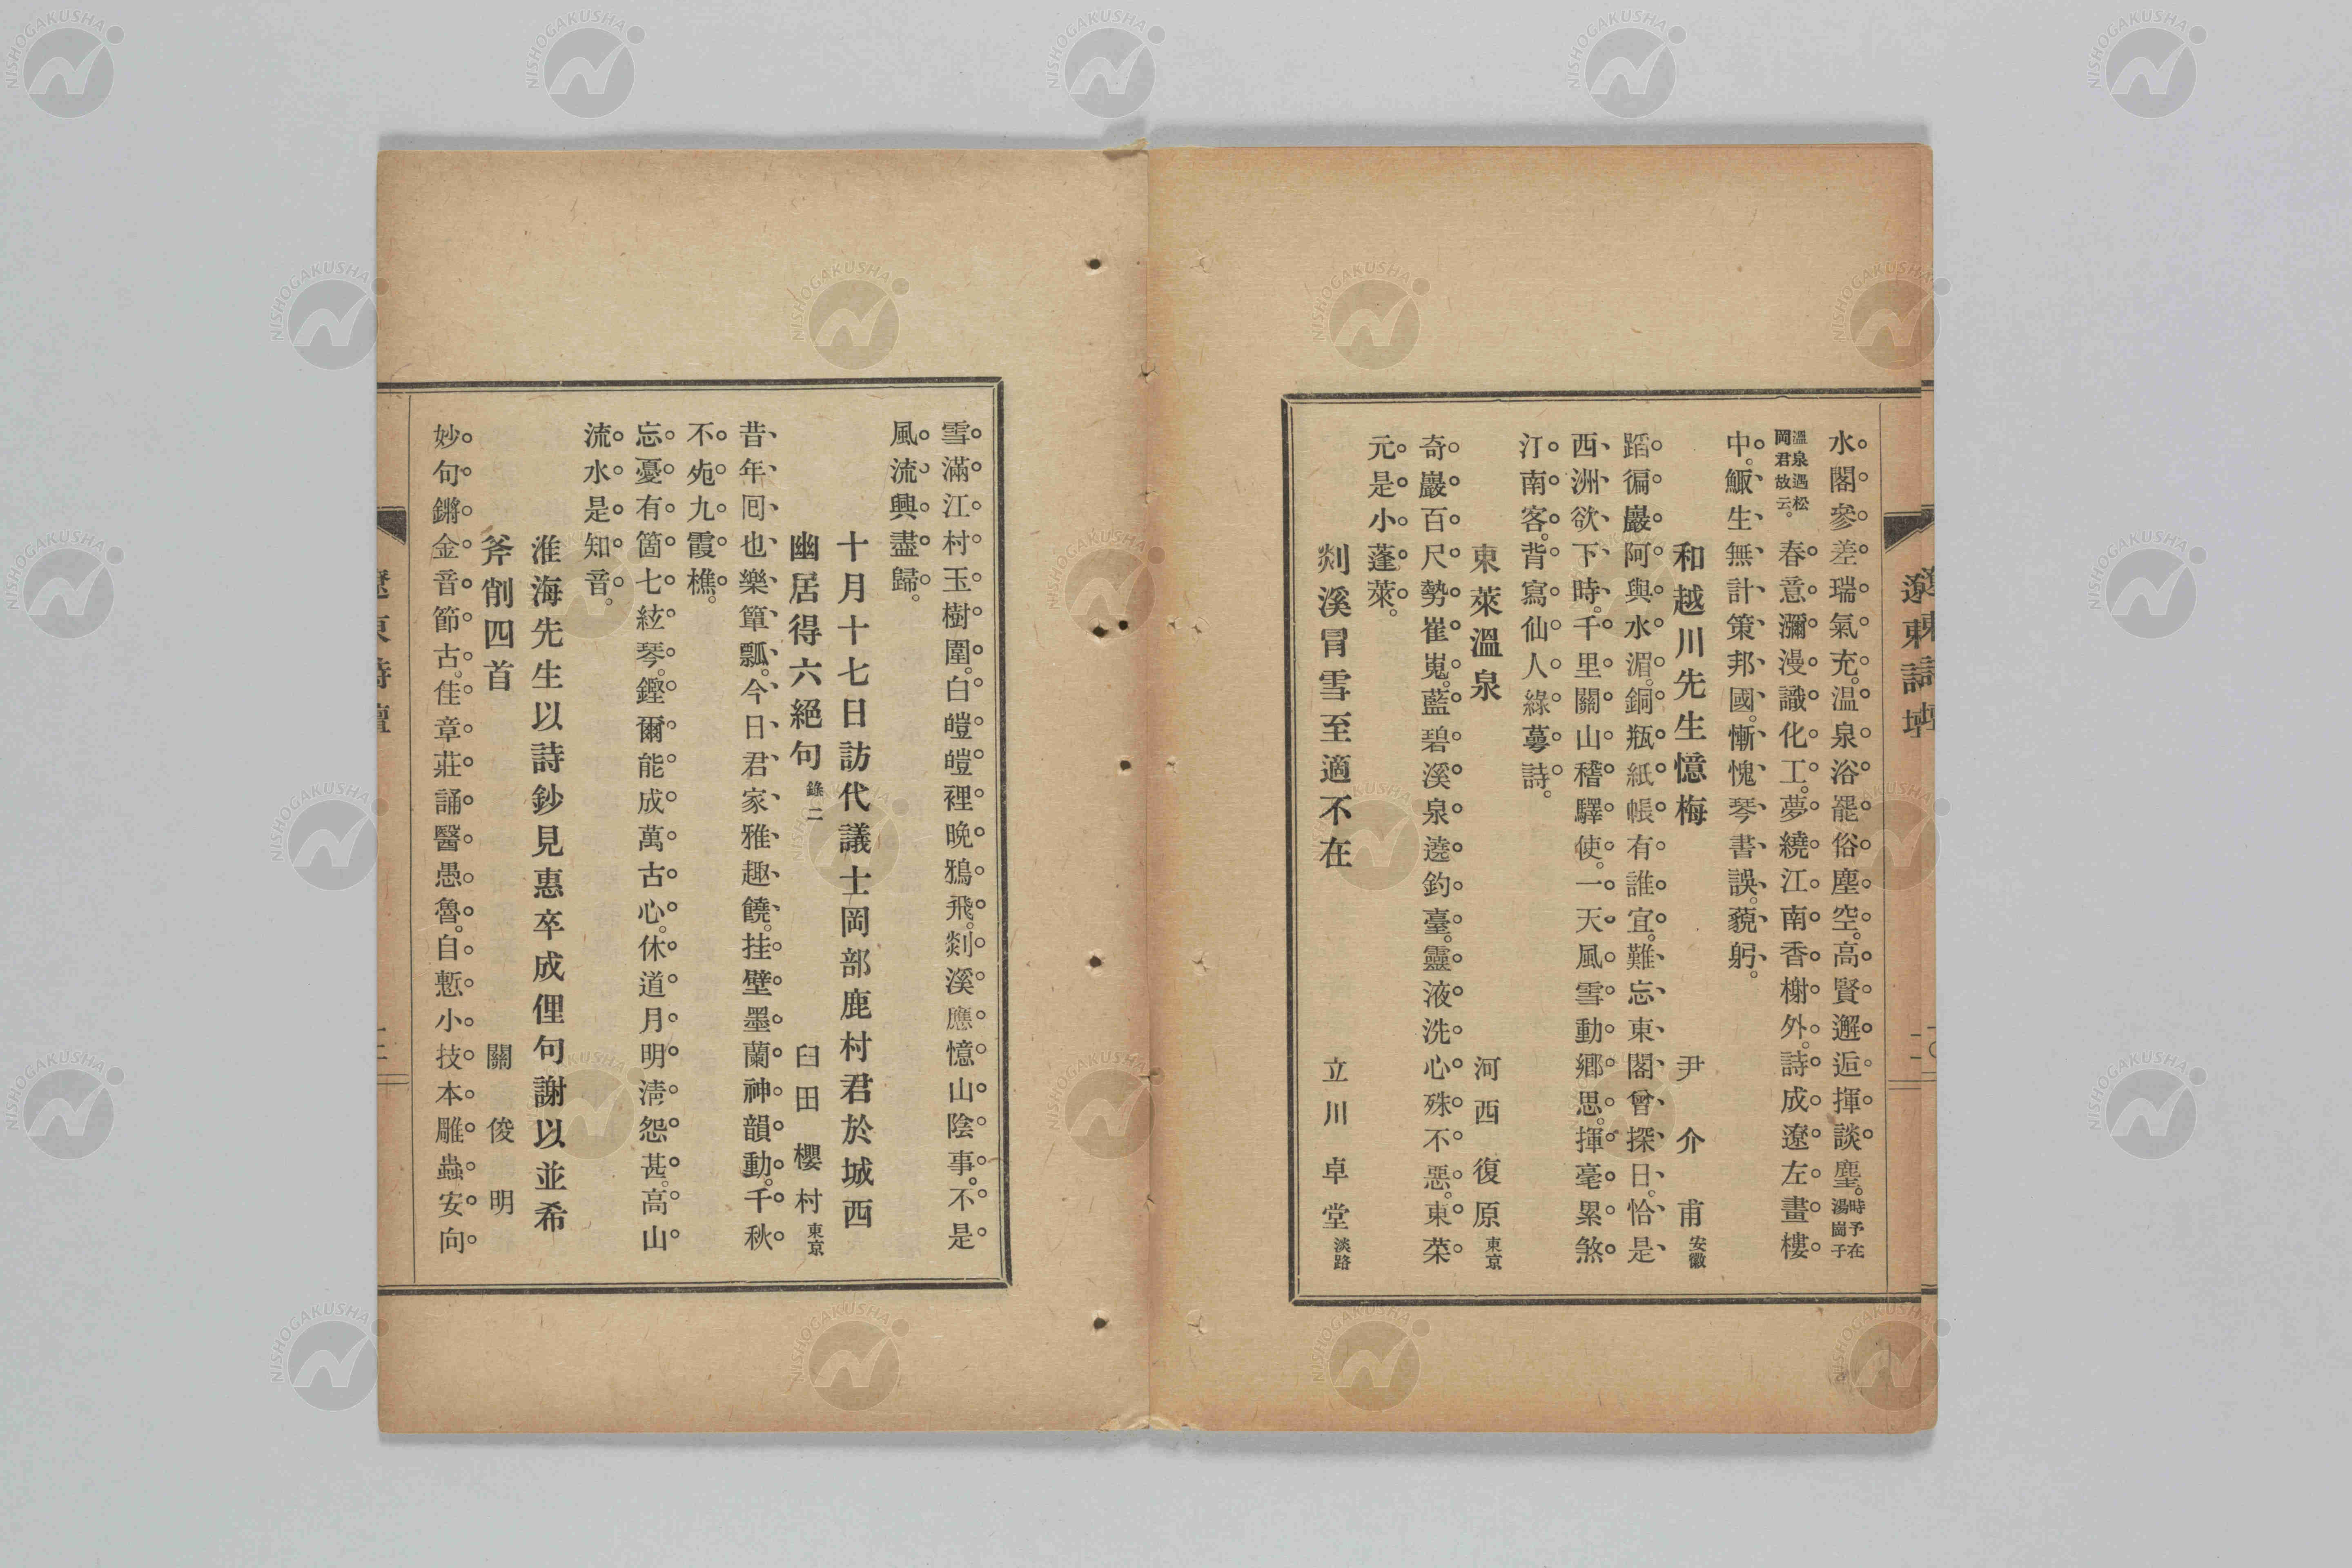 遼東詩壇
水閣參差瑞氣充。温泉浴罷俗塵空。高賢邂逅揮談麈。時予在湯崗子
溫泉遇松岡君故云。春意瀰漫識化工。夢繞江南香榭外。詩成遼左畫樓
中。鯫生無計策邦國。慚愧琴書誤藐躬。
和越川先生憶梅 尹介甫 安徽
蹈徧巖阿與水湄。銅瓶紙帳有誰宜。難忘東閣曾探日。恰是
西洲欲下時。千里關山稽驛使。一天風雪動鄕思。揮毫累煞
汀南客。背寫仙人綠蕚詩。
東萊溫泉 河西復原 東京
奇巖百尺勢崔嵬。藍碧溪泉遶釣臺。靈液洗心殊不惡。東萊
元是小蓬萊。
剡溪冒雪至適不在 立川卓堂 淡路
雪滿江村玉樹圍。白皚皚裡晚鴉飛。剡溪應憶山陰事。不是
風流興盡歸。
十月十七日訪代議士岡部鹿村君於城西
幽居得六絕句 錄二 臼田櫻村 東京
昔年囘也樂簞瓢。今日君家雅趣饒。挂壁墨蘭神韻動。千秋
不夗九霞樵。
忘憂有箇七絃琴。鏗爾能成萬古心。休道月明淸怨甚。高山
流水是知音。
淮海先生以詩鈔見惠卒成俚句謝以並希
斧削四首 關俊明
妙句鏘金音節古。佳章莊誦醫愚魯。自慙小技本雕蟲。安向
遼東詩壇